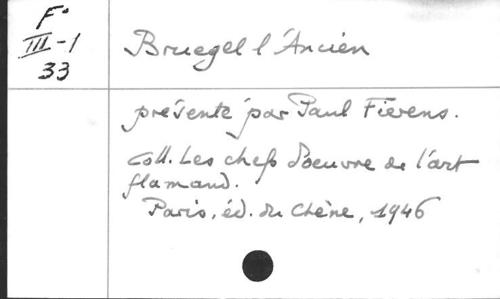 F°
III-1
33
Bruegel l'Ancien
présenté par Paul Fierens.
coll. Les chefs d'oeuvre de l'art
flamand.
Paris, éd. du Chêne, 1946